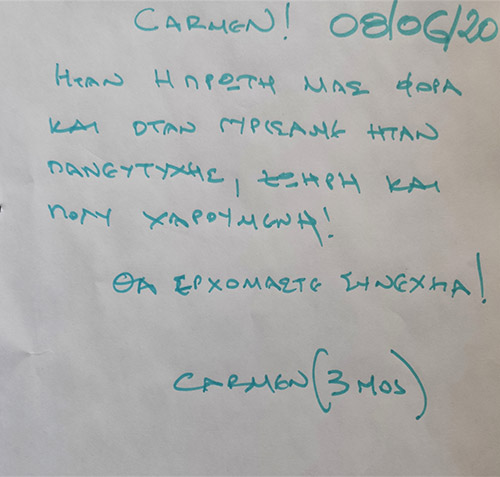 CARMEN! 08/06/20
ΗΤΑΝ Η ΠΡΩΤΗ ΜΑΣ ΦΟΡΑ
ΚΑΙ ΟΤΑΝ ΓΥΡΙΣΑΜΕ ΗΤΑΝ
ΠΑΝΕΥΤΥΧΗΣ, ΖΩΗΡΗ ΚΑΙ
ΠΟΛΥ ΧΑΡΟΥΜΕΝΗ!
ΘΑ ΕΡΧΟΜΑΣΤΕ ΣΥΝΕΧΕΙΑ!
CARMEN (3 MOS)